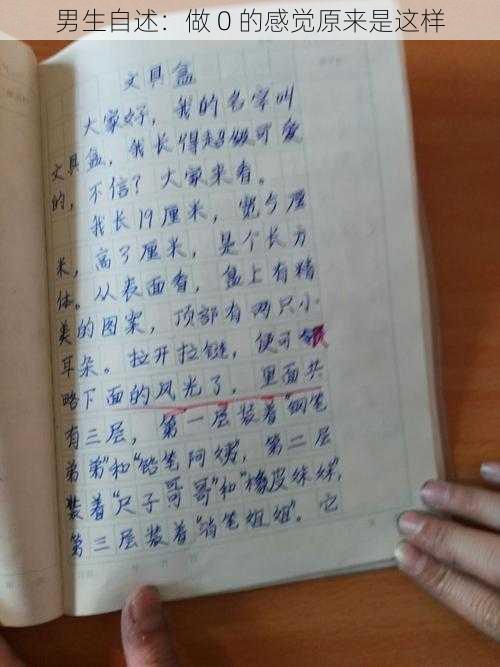 男生自述：做 0 的感觉原来是这样
文具盒
大家好，我的名字叫
文具盒，我长得超级可爱
的，不信？大家来看。
我长19厘米，宽5厘
米，高3厘米，是个长方
体。从表面看，盒上有精
美的图案，顶部有两只小
耳朵。拉开拉链，便可领
略下面的风光了，里面共
有三层，第一层装着“钢笔
弟弟”和“铅笔阿姨”，第二层
装着“尺子哥哥”和“橡皮妹妹”，
第三层装着“消笔姐姐”。它